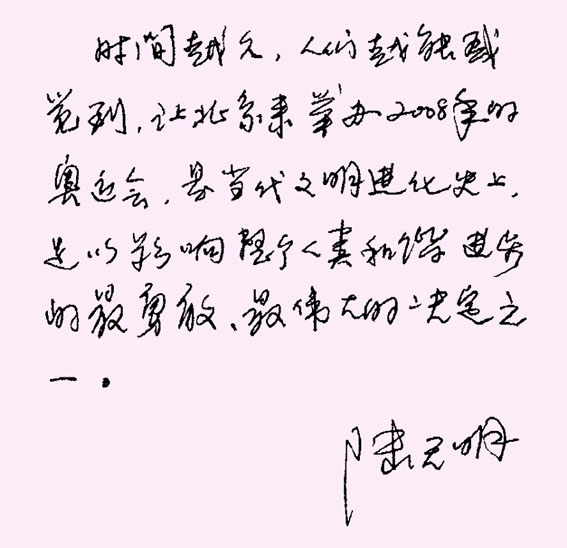 时间越久，人们越能感
觉到，让北京来举办2008年的
奥运会，是当代文明进化史上，
足以影响整个人类和谐进步
的最勇敢、最伟大的决定之
一。
陆天明